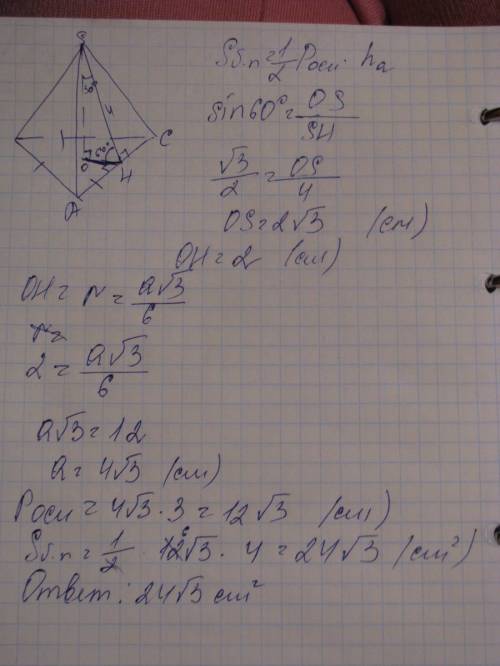 S
30°
4
60°
O
H
C
A
Sб.п = 1/2 Pосн · ha
sin60° = OS/SH
√3/2 = OS/4
OS = 2√3 (см)
OH = 2 (см)
OH = r = a√3/6
2 = a√3/6
a√3 = 12
a = 4√3 (см)
Pосн = 4√3 · 3 = 12√3 (см)
Sб.п = 1/2 · 12 6 √3 · 4 = 24√3 (см²)
Ответ: 24√3 см²